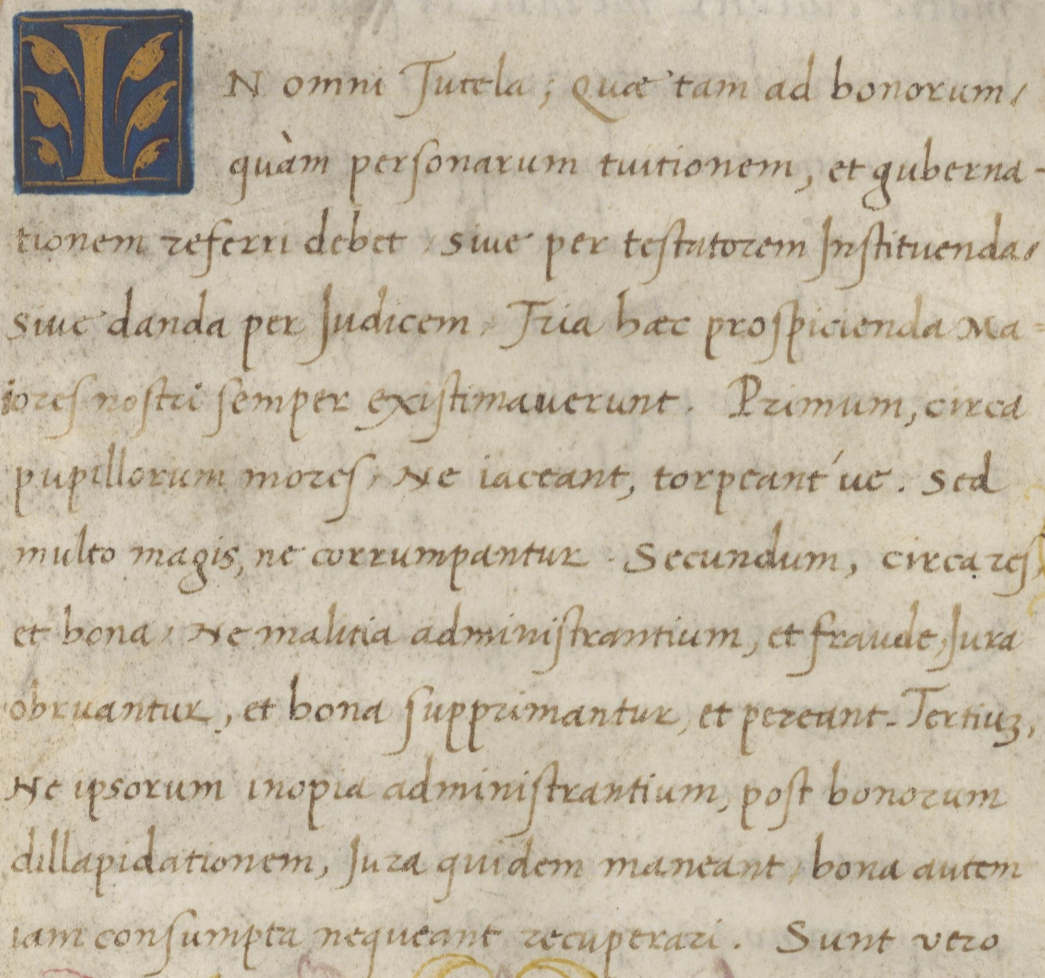 IN omni Tutela; Quæ tam ad bonorum,
quàm personarum tuitionem, et guberna-
tionem referri debet, siue per testatorem Instituenda,
siue danda per Judicem, Tria hæc prospicienda Ma=
iores nostri semper existimauerunt. Primum, circa
pupillorum mores, Ne iaceant, torpeant'ue. Sed
multo magis, ne corrumpantur. Secundum, circa res,
et bona, Ne malitia administrantium, et fraude, Jura
obruantur, et bona supprimantur, et pereant. Tertiuʒ,
Ne ipsorum inopia administrantium, post bonorum
dillapidationem, Jura quidem maneant, bona autem
iam consumpta nequeant recuperari. Sunt vero